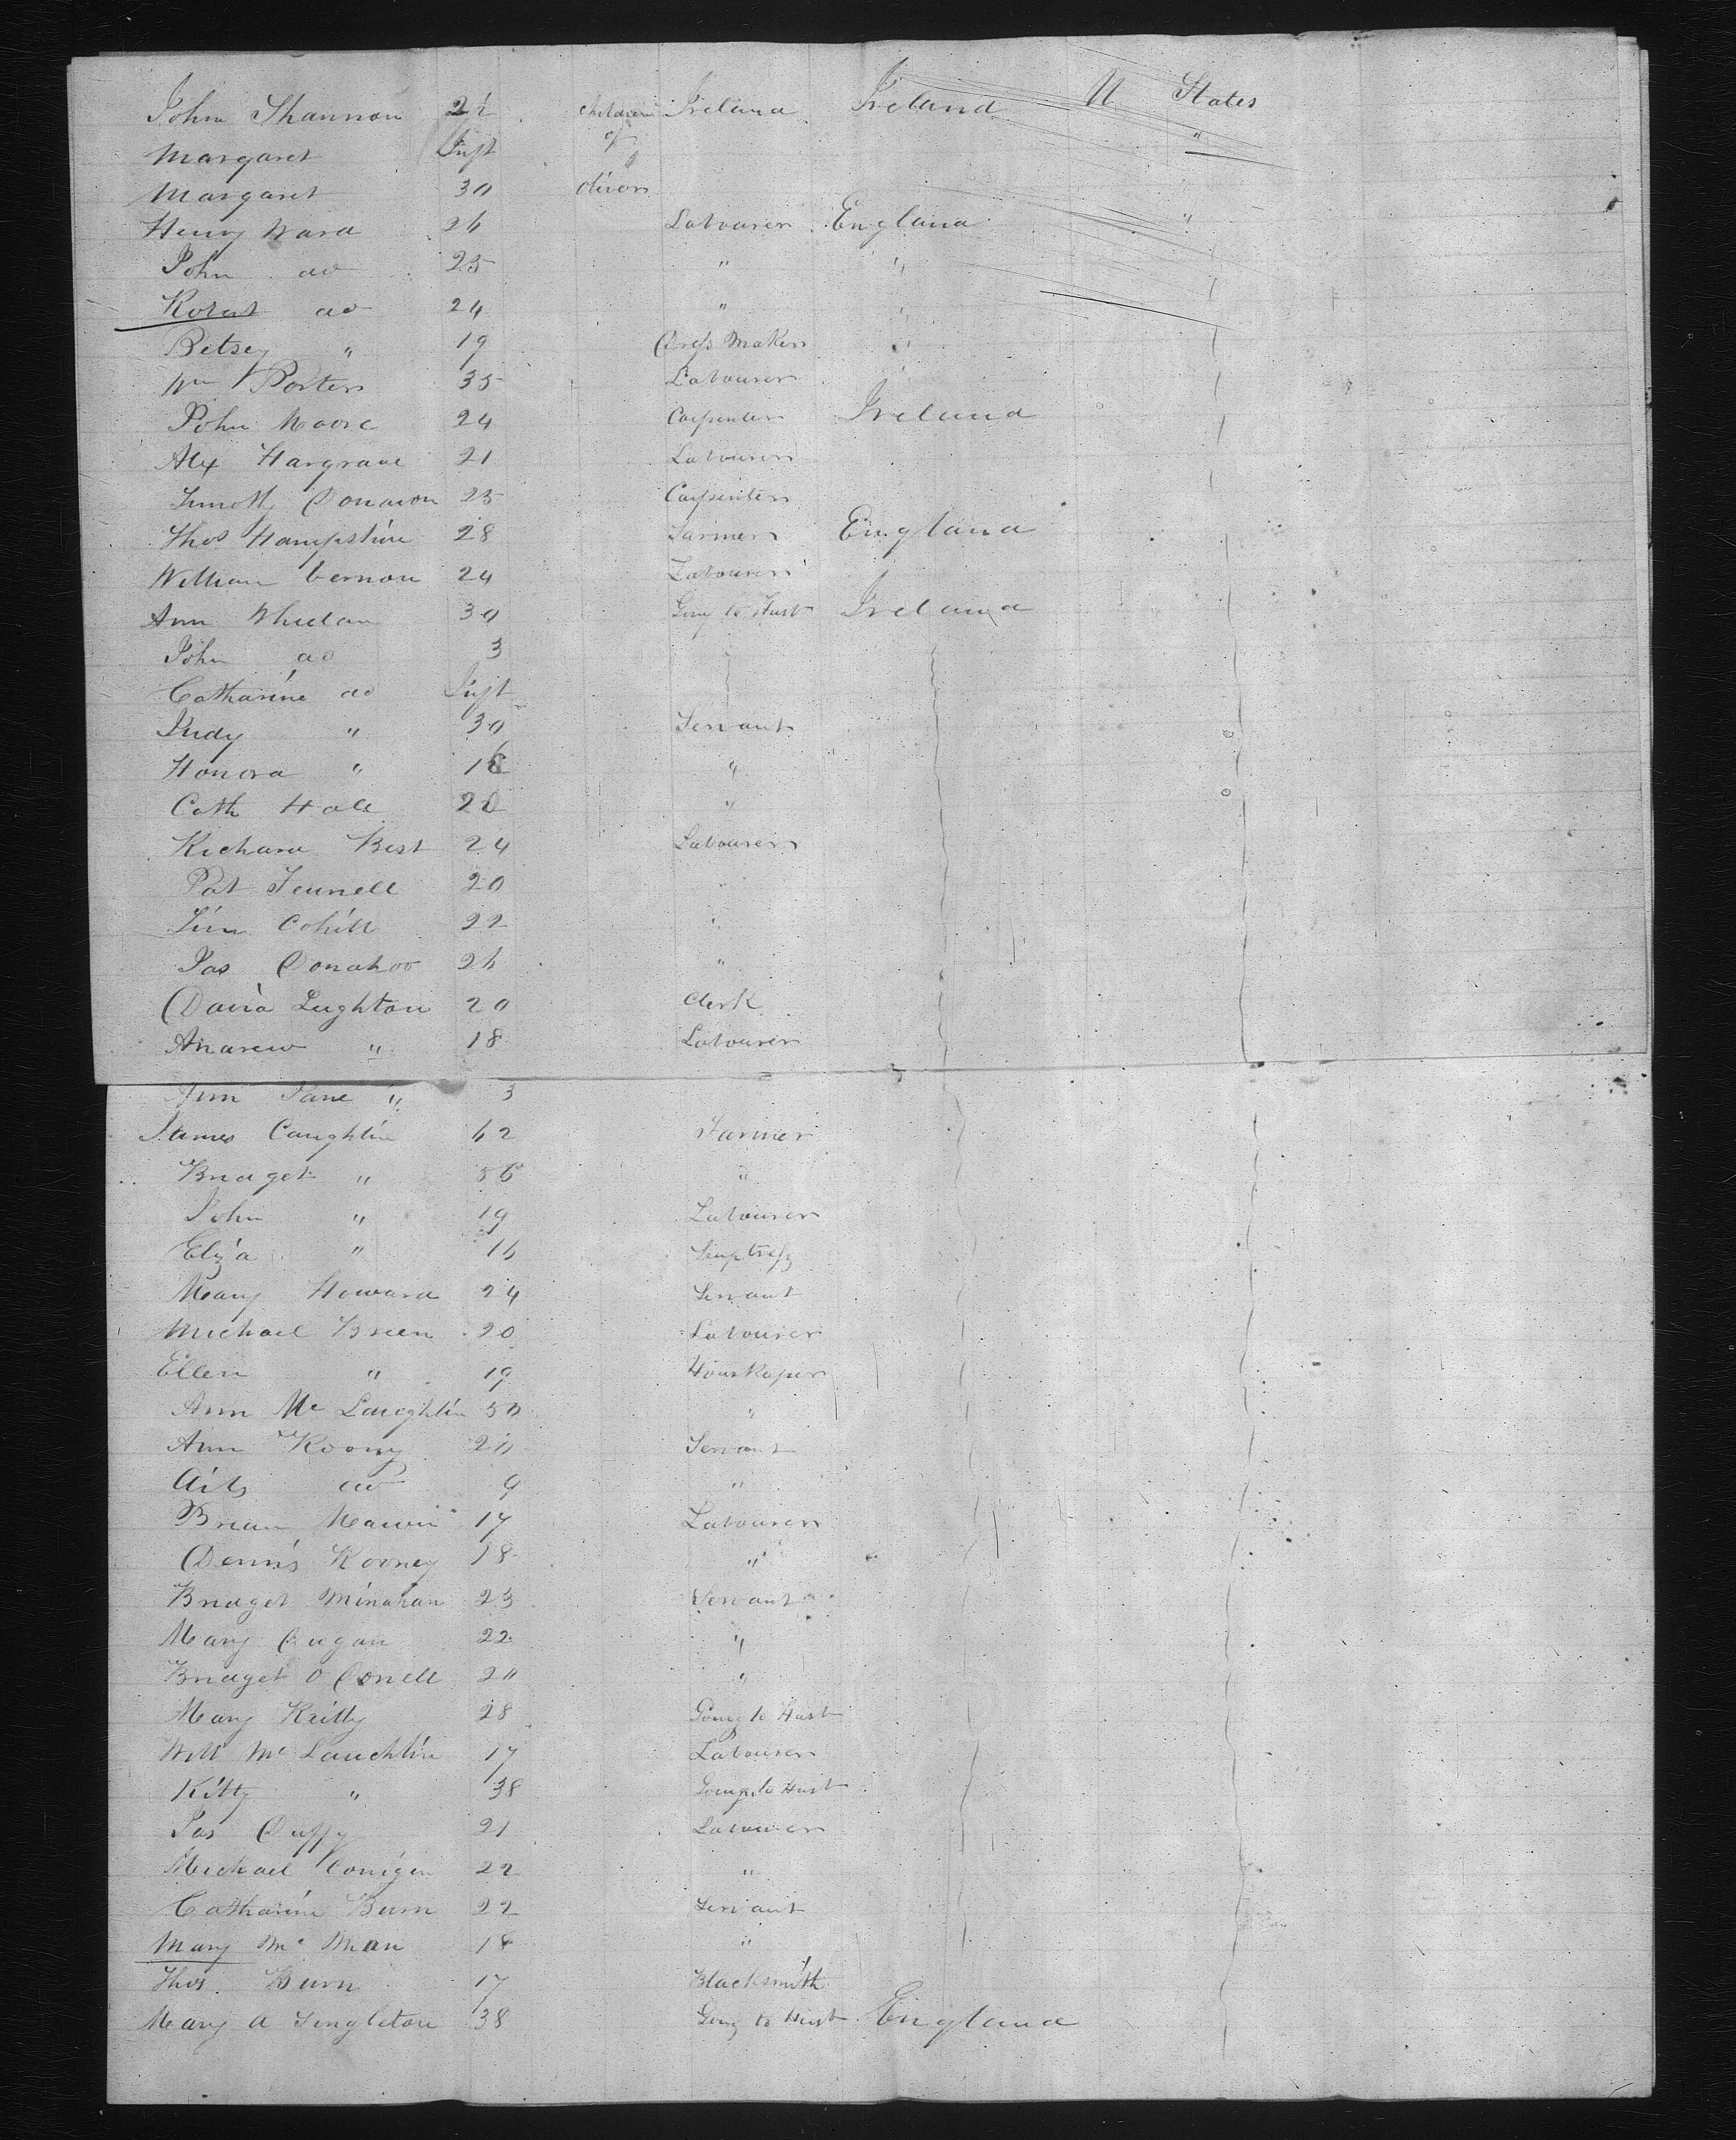 John Shannon 2½ children Ireland Ireland U States
Margaret Inft of "
Margaret 30 divon
Henry Ward 26 Labourer England "
John do 25 " "
Robert do 24 " "
Betsey " 19 Dress Maker "
Wm Porter 35 Labourer
John Moore 24 Carpenter Ireland
Alex Hargrave 21 Labourer
Timothy Donavon 25 Carpenter
Thos Hampshire 28 Farmer England
William Vernon 24 Labourer
Ann Whelan 30 Going to Husb Ireland
John do 3
Catharine do Inft
Judy " 30 Servant
Honora " "
Cath Hall 20 "
Richard Best 24 Labourer
Pat Fennell 20 "
Tim Cohill 22 "
Jas Donahoo 26 "
David Leighton 20 Clerk
Andrew " 18 Labourer
Ann Jane " 3
James Caughlin 62 Farmer
Bridget " 56 "
John " 19 Labourer
Eliza " 16 Semptress
Mary Howard 24 Servant
Michael Breen 20 Labourer
Ellen " 19 Houskeeper
Ann Mc Laughlin 50 "
Ann Roony 20 Servant
do 9 "
Brian 17 Labourer
Dennis Rooney 18 "
Bridget Minahan 23 Servant
Mary Dugan 22 "
Bridget O Conell 20 "
Mary Reilly 28 Going to Husb
Will Mc Lauchlin 17 Labourer
Kitty " 38 Going to Husb
Jas Duffy 21 Labourer
Michael Corrigin 22 "
Catharine Burn 22 Servant
Mary Mc Man 18 "
Thos. Burn 17 Blacksmith
Mary A Singleton 38 Going to Husb England